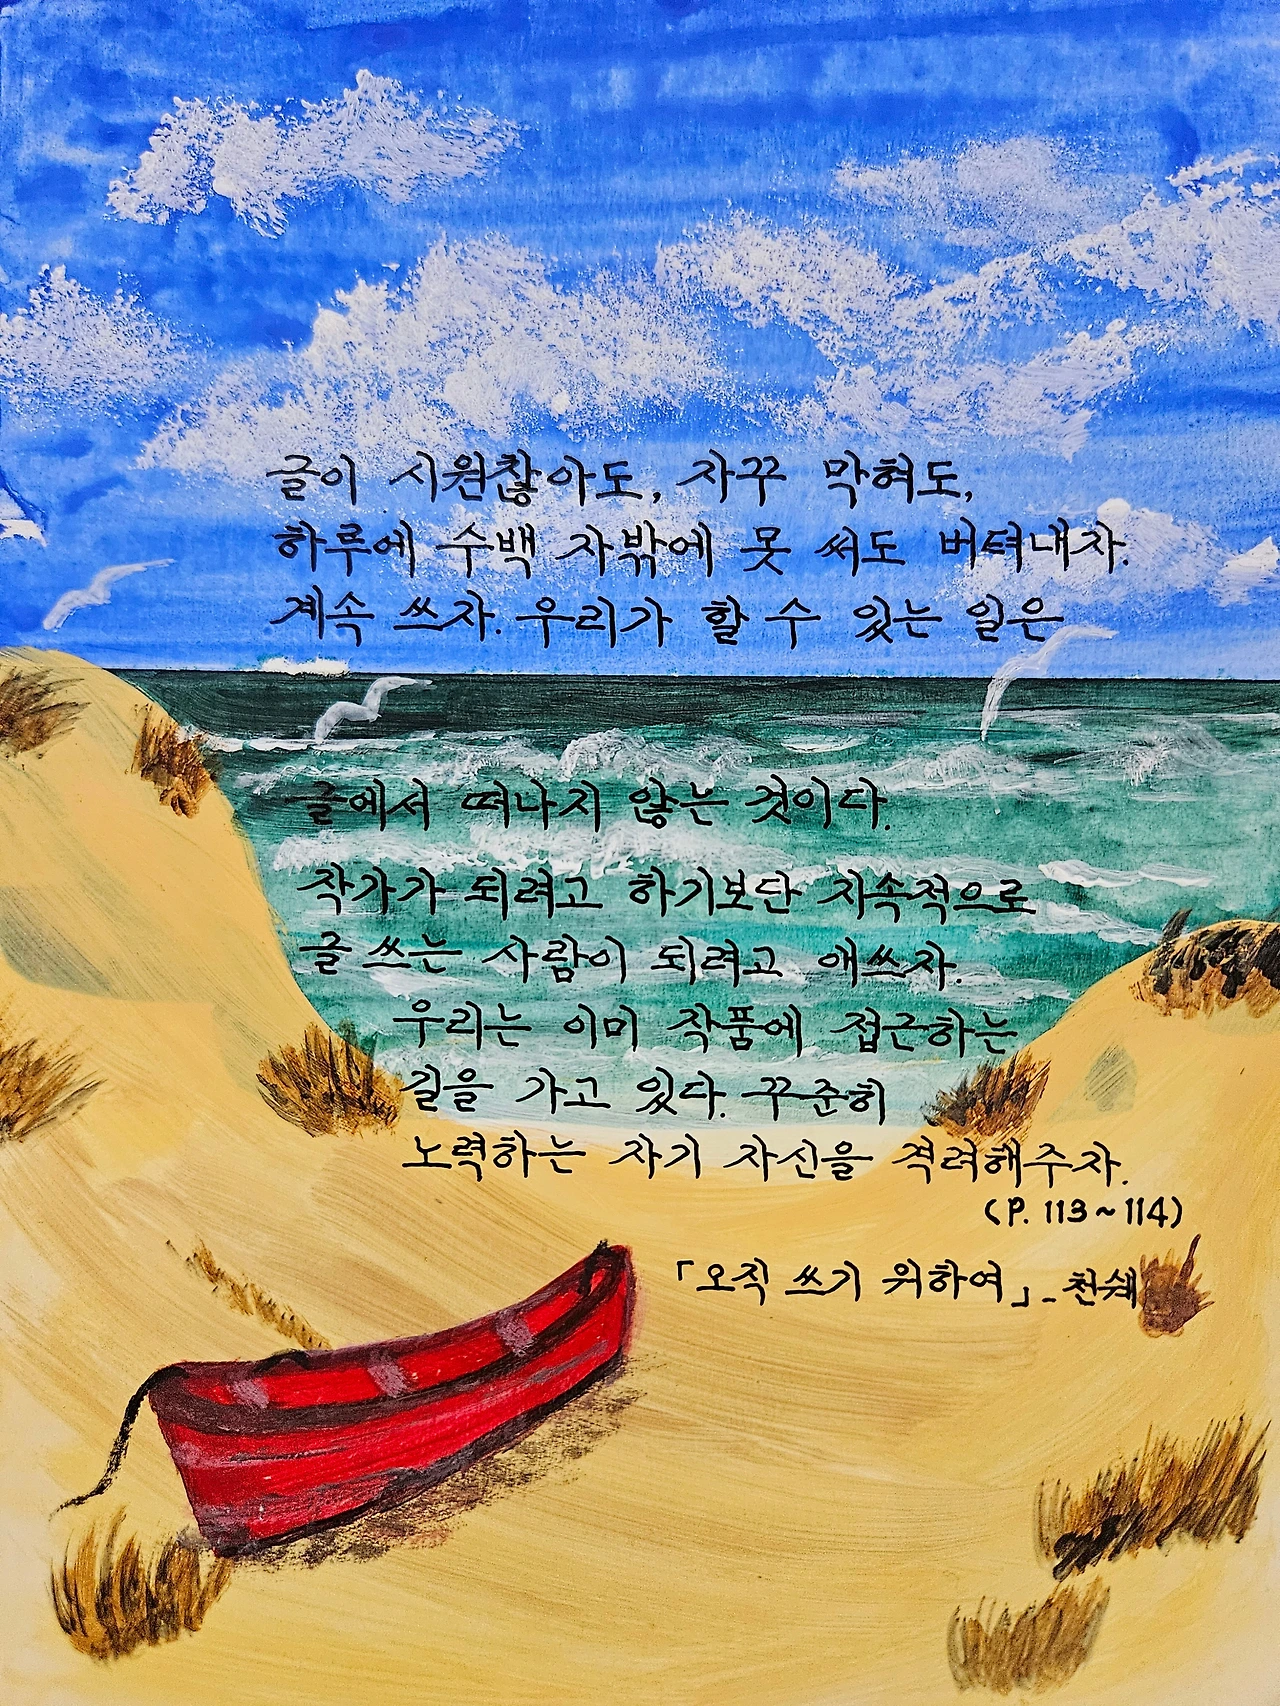 글이 시원찮아도, 자꾸 막혀도,
하루에 수백 자밖에 못 써도 버텨내자.
계속 쓰자. 우리가 할 수 있는 일은
글에서 떠나지 않는 것이다.
작가가 되려고 하기보단 지속적으로
글 쓰는 사람이 되려고 애쓰자.
우리는 이미 작품에 접근하는
길을 가고 있다. 꾸준히
노력하는 자기 자신을 격려해주자.
(P. 113~114)
「오직 쓰기 위하여」- 천쉐